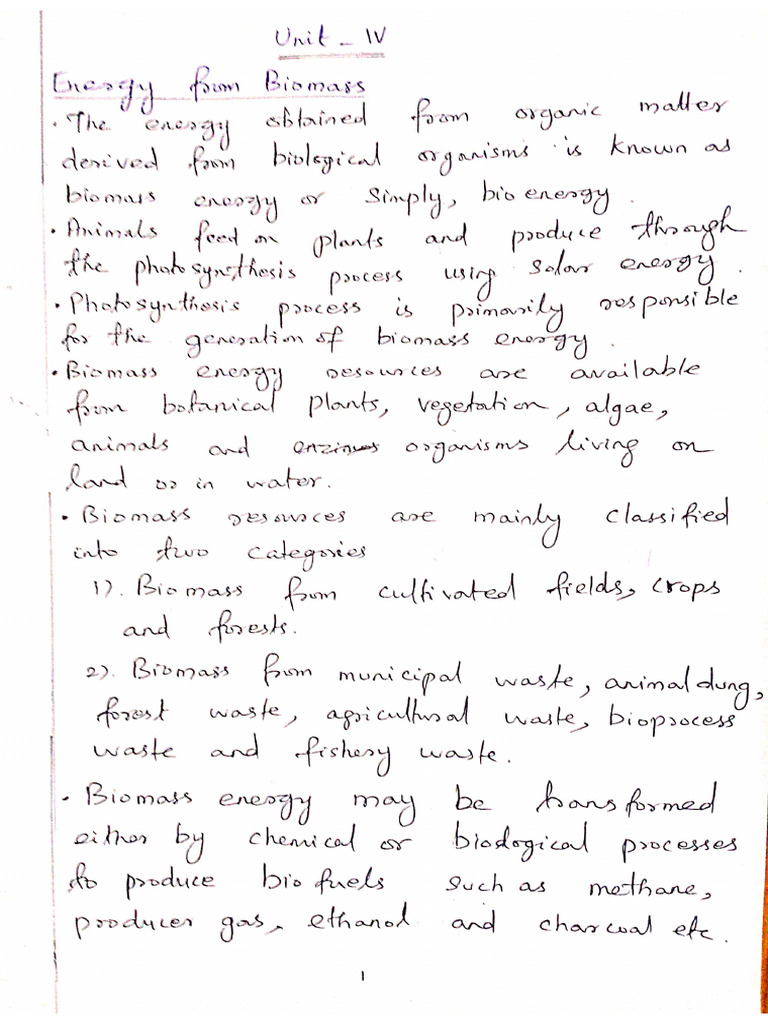 Unit - IV
Energy from Biomass
• The energy obtained from organic matter
derived from biological organisms is known as
biomass energy or simply, bio energy.
• Animals feed on plants and produce through
the photosynthesis process using solar energy.
• Photosynthesis process is primarily responsible
for the generation of biomass energy.
• Biomass energy resources are available
from botanical plants, vegetation, algae,
animals and organisms living on
land or in water.
• Biomass resources are mainly classified
into two categories
1). Biomass from cultivated fields, crops
and forests.
2). Biomass from municipal waste, animal dung,
forest waste, agricultural waste, bioprocess
waste and fishery waste.
• Biomass energy may be transformed
either by chemical or biological processes
to produce bio fuels such as methane,
producer gas, ethanol and charcoal etc.
1